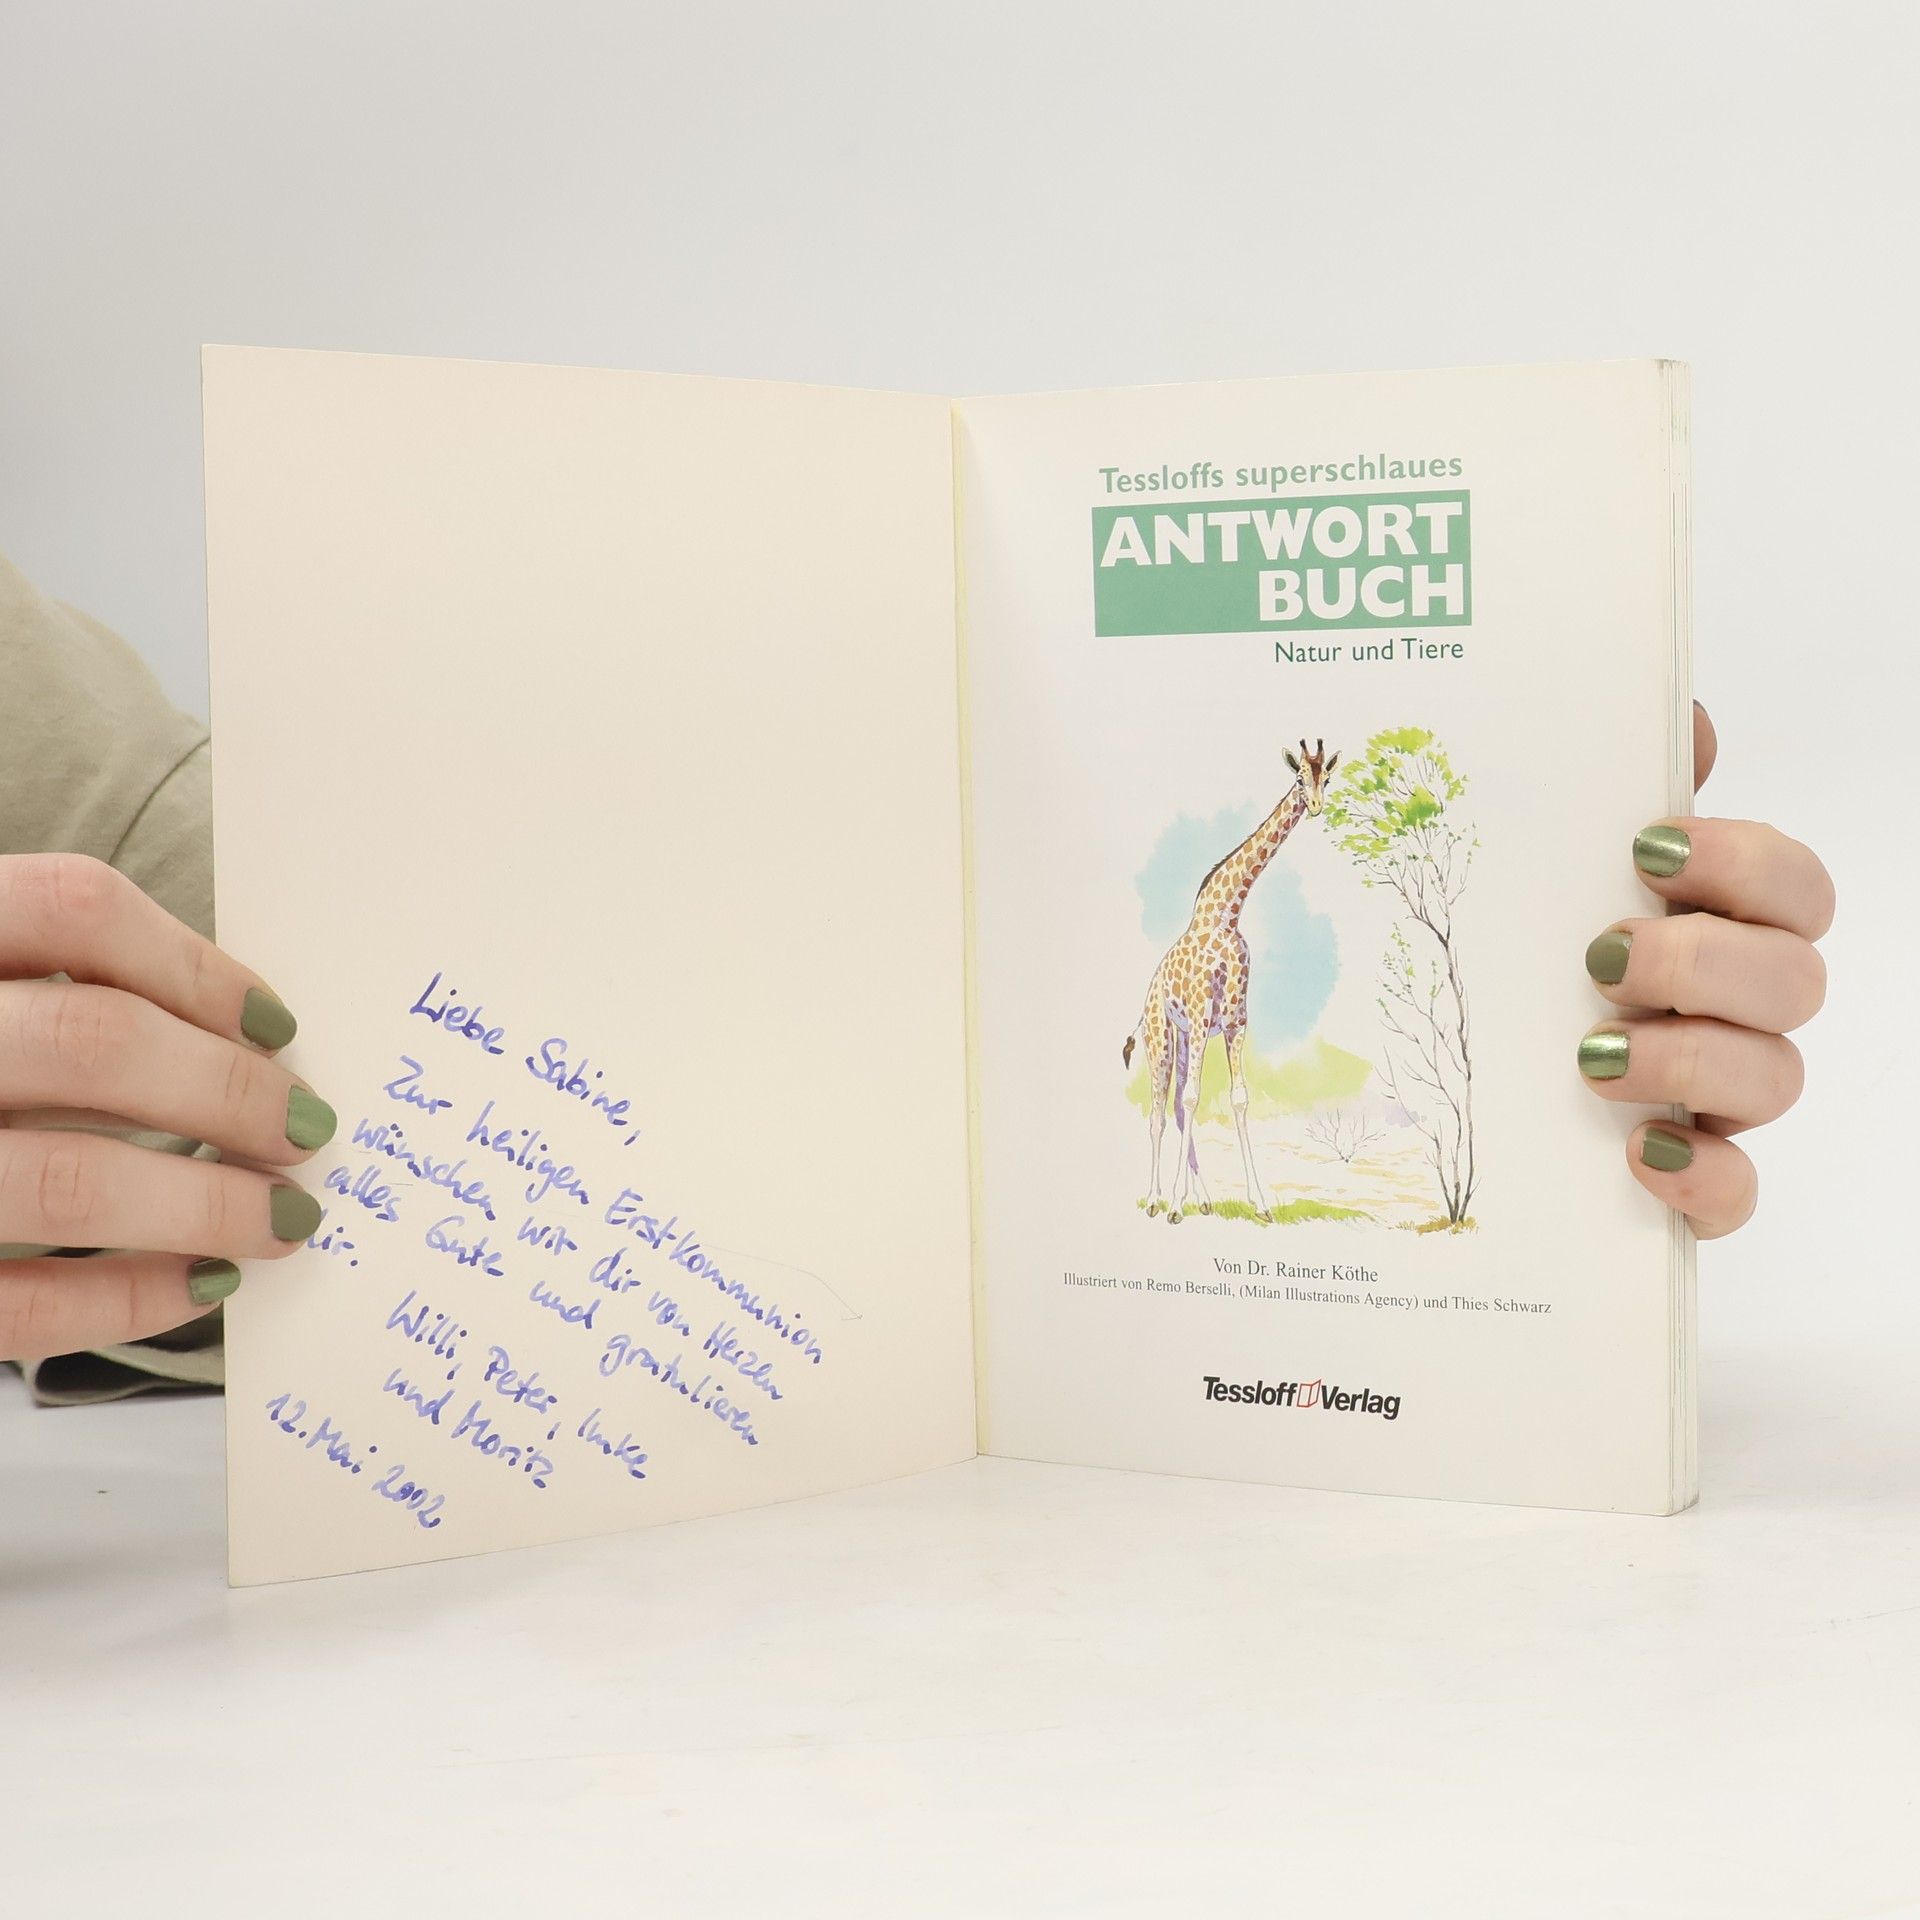 Liebe Sabine,
Zur heiligen Erstkommunion
wünschen wir dir von Herzen
alles Gute und gratulieren
dir.
Willi, Peter, Imke
und Moritz
12. Mai 2002
Tessloffs superschlaues
ANTWORT
BUCH
Natur und Tiere
Von Dr. Rainer Köthe
Illustriert von Remo Berselli, (Milan Illustrations Agency) und Thies Schwarz
Tessloff Verlag